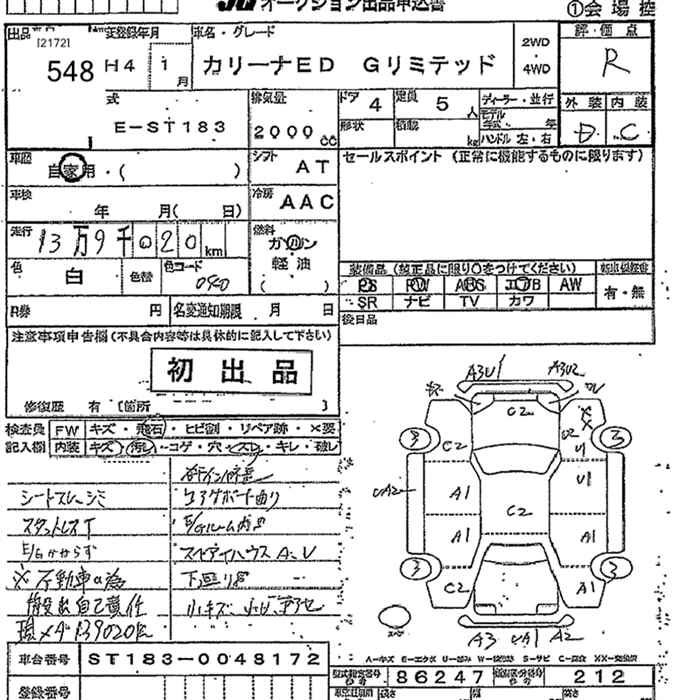 オークション出品申込書
①会場控
出品 初度登録年月 車名・グレード 評価点
[21721]
548 H4 1月 カリーナED Gリミテッド 2WD・4WD R
型式 排気量 ドア 4 定員 5人 ディーラー・並行 外装 内装
E-ST183 2000cc 形状 積載 kg モデル年式 年 ハンドル 左・右 D C
車歴 自家用・( ) シフト AT セールスポイント (正常に機能するものに限ります)
車検 年 月( 日) 冷房 AAC
走行 13万9千020km 燃料 ガソリン 軽油 ( )
色 白 色替 色コード 040
装備品 (純正品に限り○をつけてください)
PS PW ABS エアB AW 有・無
SR ナビ TV カワ
R券 円 名変通知期限 月 日 後日品
注意事項申告欄 (不具合内容等は具体的に記入して下さい)
初出品
修復歴 有 [箇所 ]
検査員 FW キズ・飛石・ヒビ割・リペア跡・×要
記入欄 内装 キズ・汚れ・コゲ・穴・スレ・キレ・破レ
スタットレスT
E/Gかからず
※不動車の為
搬出自己責任
現メーター139020K
コアサポート曲り
E/Gルーム内サビ
下廻りサビ
A3U1 A3U2
C2
3 C2 U2 3
U1
UA2 A1 U1
C2
A1 A1
3 C2 A1 3
スペア
A3 UA1 A2
A-キズ E-エクボ U-凹み W-波打ち S-サビ C-腐食 XX-交換済
車台番号 ST183-0048172
型式指定番号 86247 類別区分番号 212
登録番号